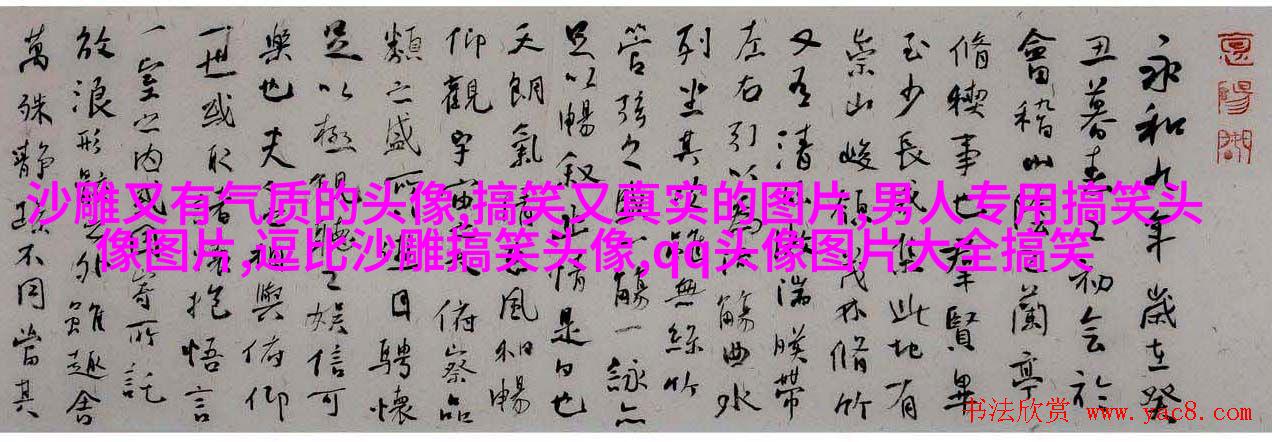 永和九年歲在癸
丑暮春之初會於
會稽山陰之蘭亭
脩稧事也群賢畢
至少長咸集此地有
崇山峻領茂林脩竹
又有清流激湍暎帶
左右引以為流觴曲水
列坐其次雖無絲竹
管弦之盛一觴一詠亦
足以暢叙幽情是日也
天朗氣清惠風和暢
仰觀宇宙之大俯察品
類之盛所以遊目騁懷
足以極視聽之娛信可
樂也夫人之相與俯仰
一世或取諸懷抱悟言
一室之內或因寄所託
放浪形骸之外雖趣舍
萬殊靜躁不同當其
沙雕又有气质的头像,搞笑又真实的图片,男人专用搞笑头
像图片,逗比沙雕搞笑头像,qq头像图片大全搞笑
书法欣赏
www.yac8.com